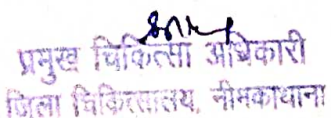 प्रमुख चिकित्सा अधिकारी
जिला चिकित्सालय, नीमकाथाना